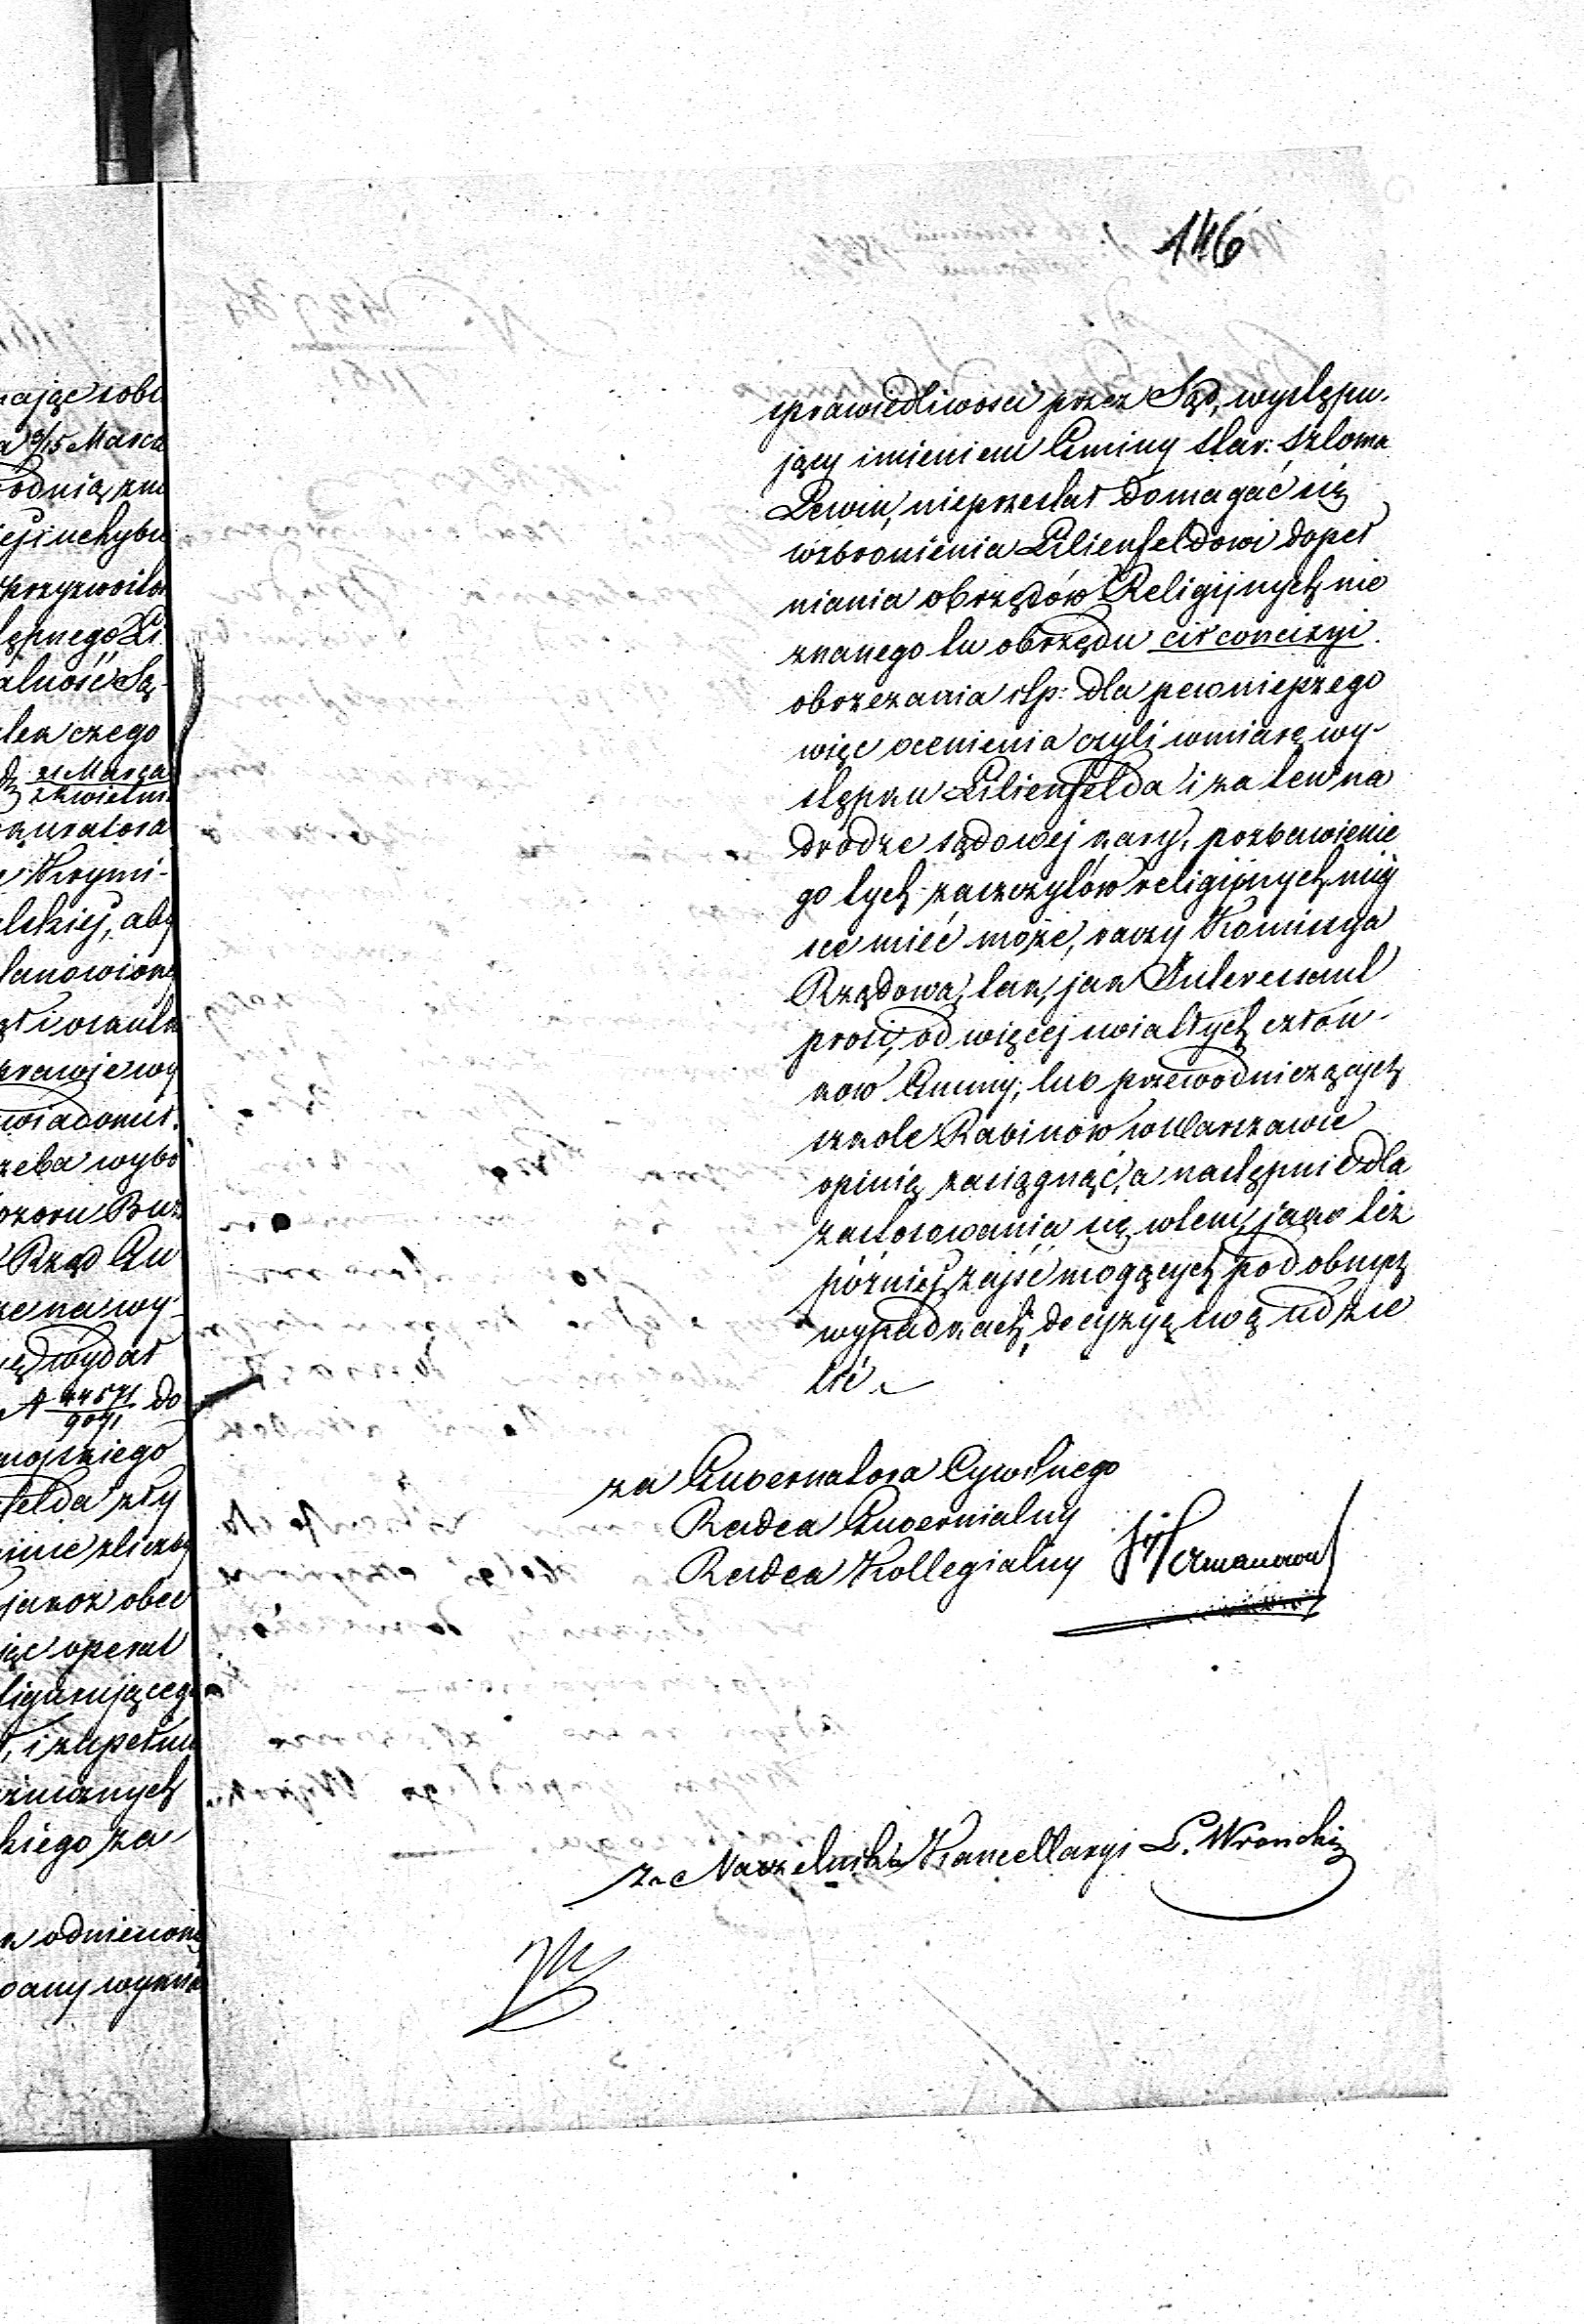 146
sprawiedliwosci przez Sąd, występu-
jący imieniem Gminy Star: Szloma
Lewin, nieprzestał domagać się
wzbronienia Lilienfeldowi dopeł
niania obrzędów Religijnych nie
znanego tu obrzędu circoncizyi
obrzezania itp: dla pewniejszego
więc ocenienia czyli wmiarę wy-
stępku Lilienfelda i za ten na
drodze sądowej kary, pozbawienie
go tych zaszczytów religijnych miej
sce mieć może, raczy Kommissya
Rządowa, tak, jak Interessant
prosi, od więcej światłych człon-
ków Gminy, lub przewodniczących
szkole Rabinów w Warszawie
opinią zasiągnąć, a następnie dla
zastosowania się wtem, jako też
później zajść mogących podobnych
wypadkach, decyzyą swą udzie
lić.
za Gubernatora Cywilnego
Radca Gubernialny
Radca Kollegialny
za Naczelnika Kancellaryi L. Wronski
ając sobi
3/15 Marca
ępnego Li
alność Są-
czego
21 Marca
2 Kwietni
kuratora
Krymi-
lskiej, aby
wiadomił.
wybó
Rząd Gu
że na wy-
wydał
44571
9071
do
mojskiego
felda
jakoż obec
operat
figurującego
i zupełnie
kiego za-